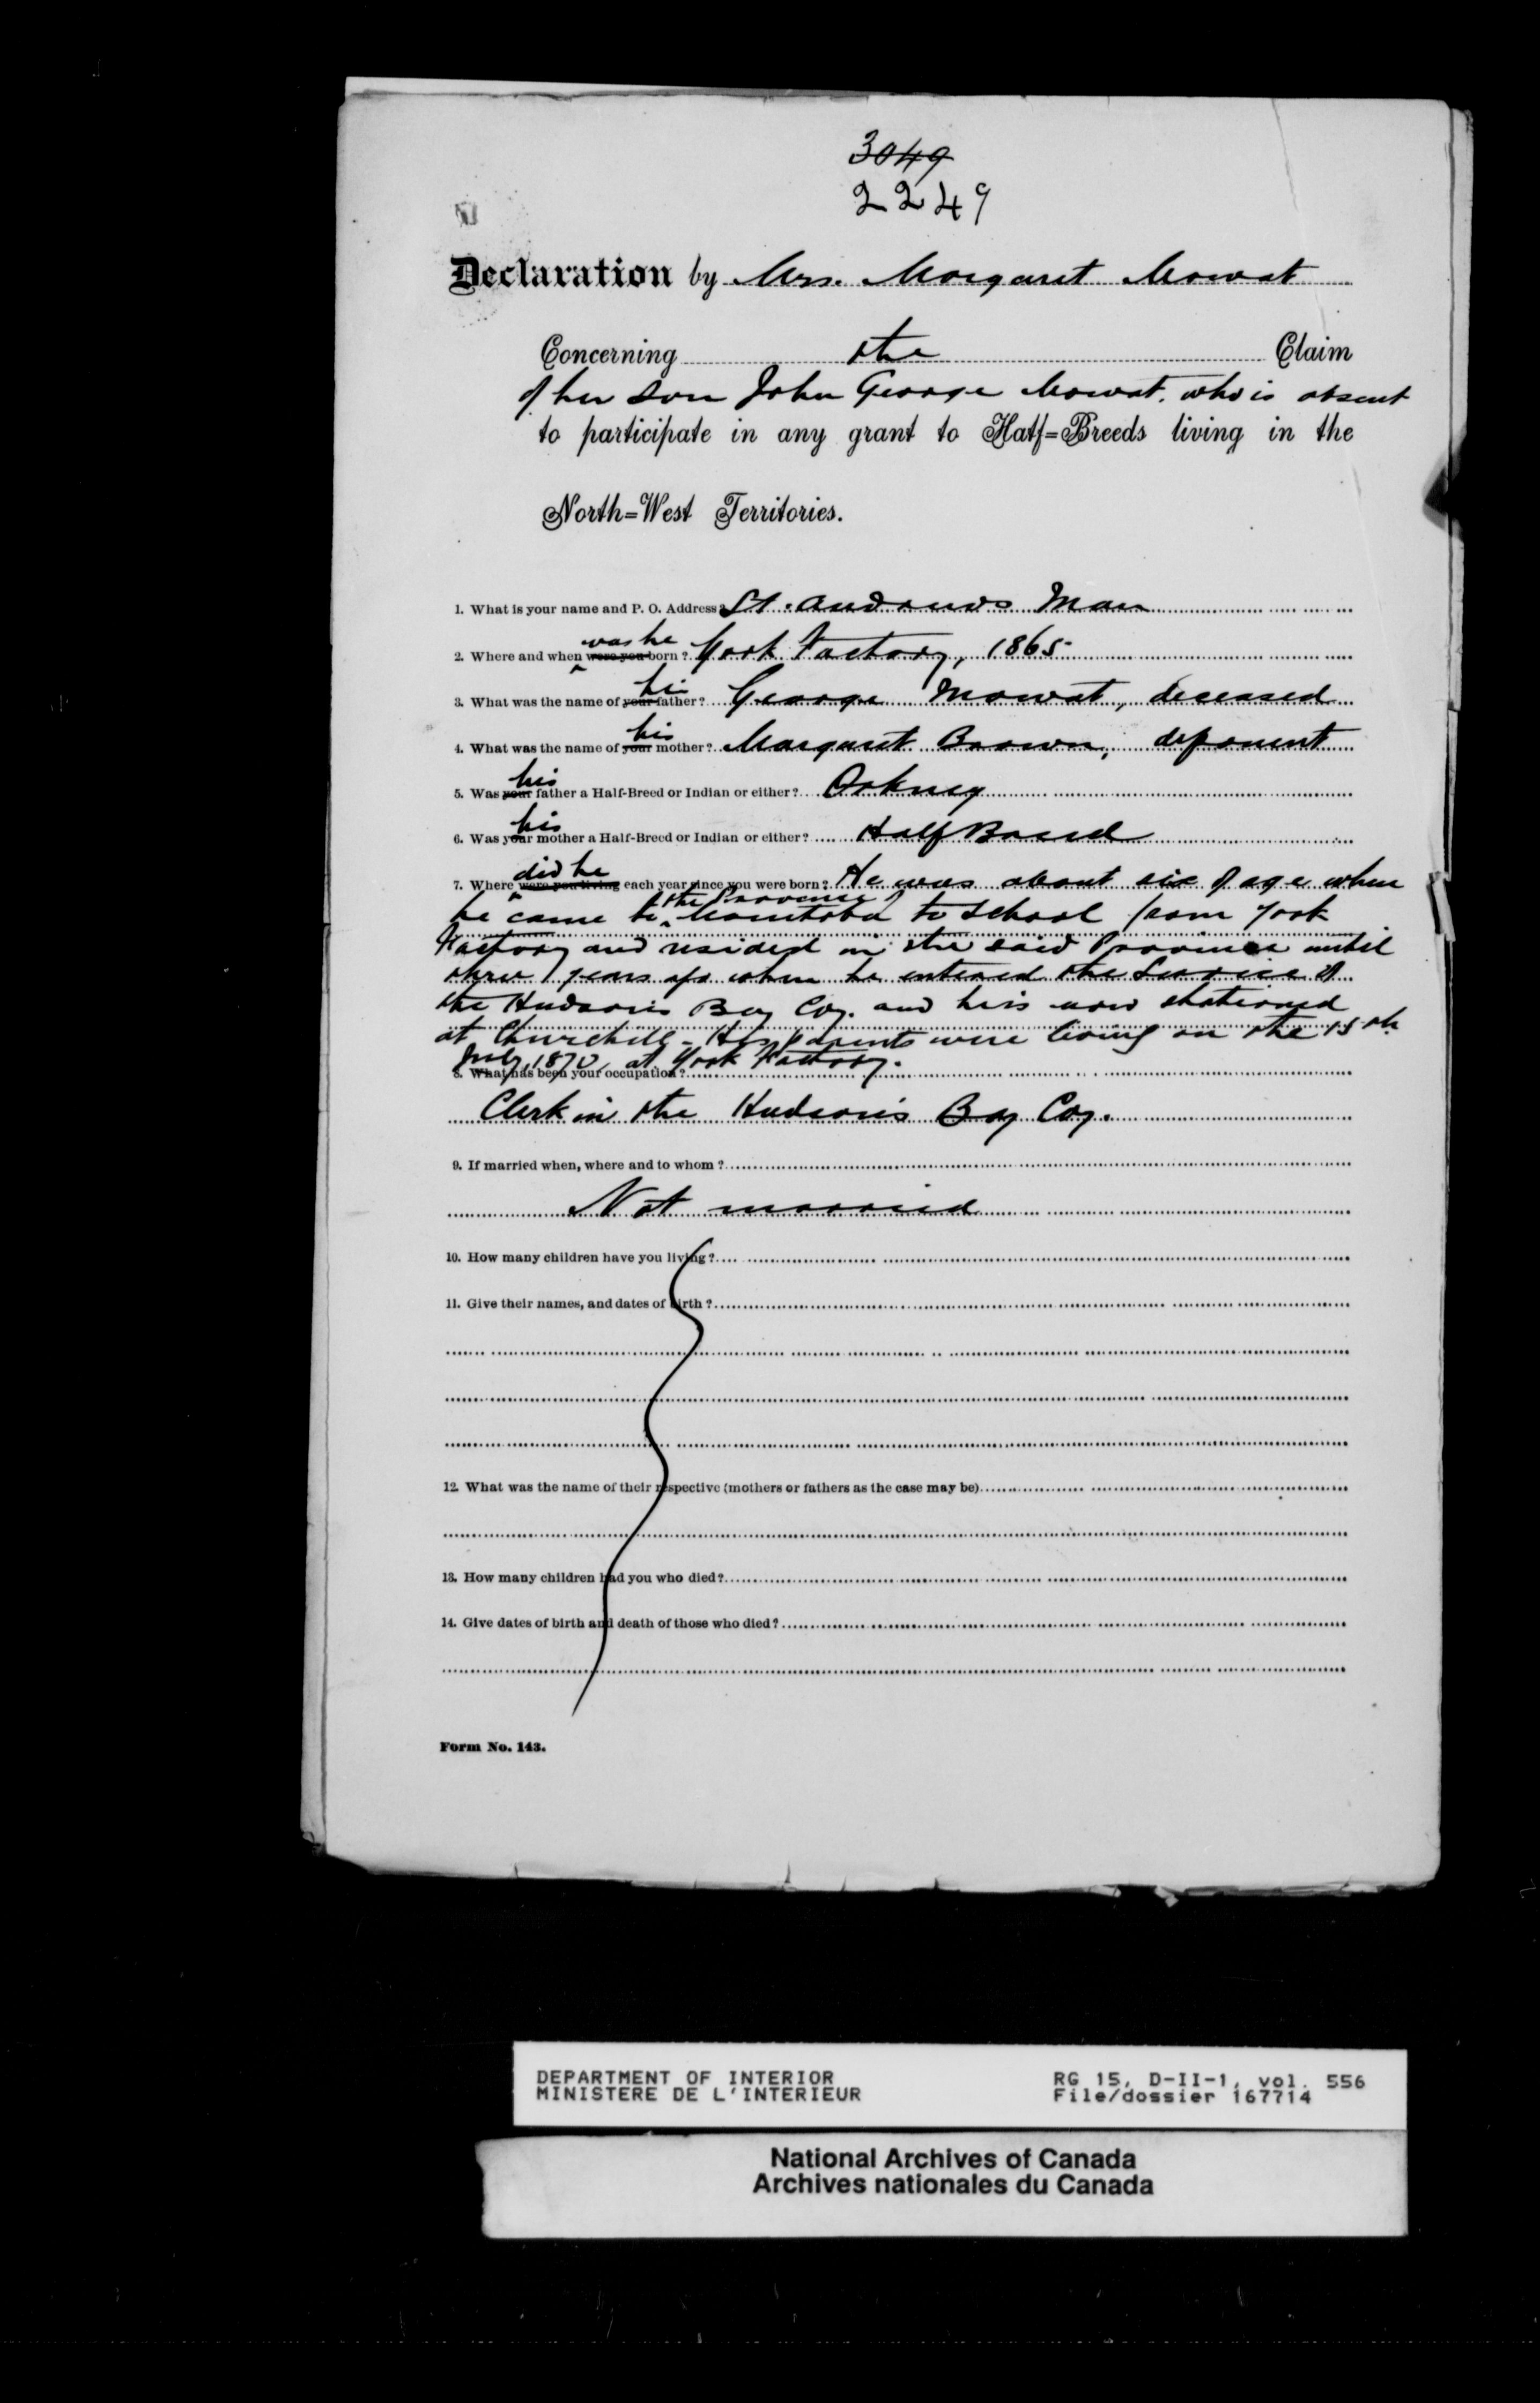 3049
2249
Declaration by Mrs. Margaret Mowat
Concerning the Claim
of her son John George Mowat. who is absent
to participate in any grant to Half=Breeds living in the
North=West Territories.
1. What is your name and P. O. Address? St. Andrews Man
was he
2. Where and when were you born? York Factory, 1865
his
3. What was the name of your father? George Mowat, deceased
his
4. What was the name of your mother? Margaret Brown, deponent
his
5. Was your father a Half-Breed or Indian or either? Orkney
his
6. Was your mother a Half-Breed or Indian or either? Half Breed
did he
7. Where were you living each year since you were born? He was about six of age when
the Province of
he came to Manitoba to School from York
Factory and resided in the said Province until
three years ago when he entered the Service of
the Hudson's Bay Coy. and he is now stationed
at Churchill - His parents were living on the 15th
July 1870 at York Factory.
8. What has been your occupation?
Clerk in the Hudson's Bay Coy.
9. If married when, where and to whom?
Not married
10. How many children have you living?
11. Give their names, and dates of birth?
12. What was the name of their respective (mothers or fathers as the case may be)
13. How many children had you who died?
14. Give dates of birth and death of those who died?
Form No. 143.
DEPARTMENT OF INTERIOR RG 15, D-II-1, vol. 556
MINISTERE DE L'INTERIEUR File/dossier 167714
National Archives of Canada
Archives nationales du Canada